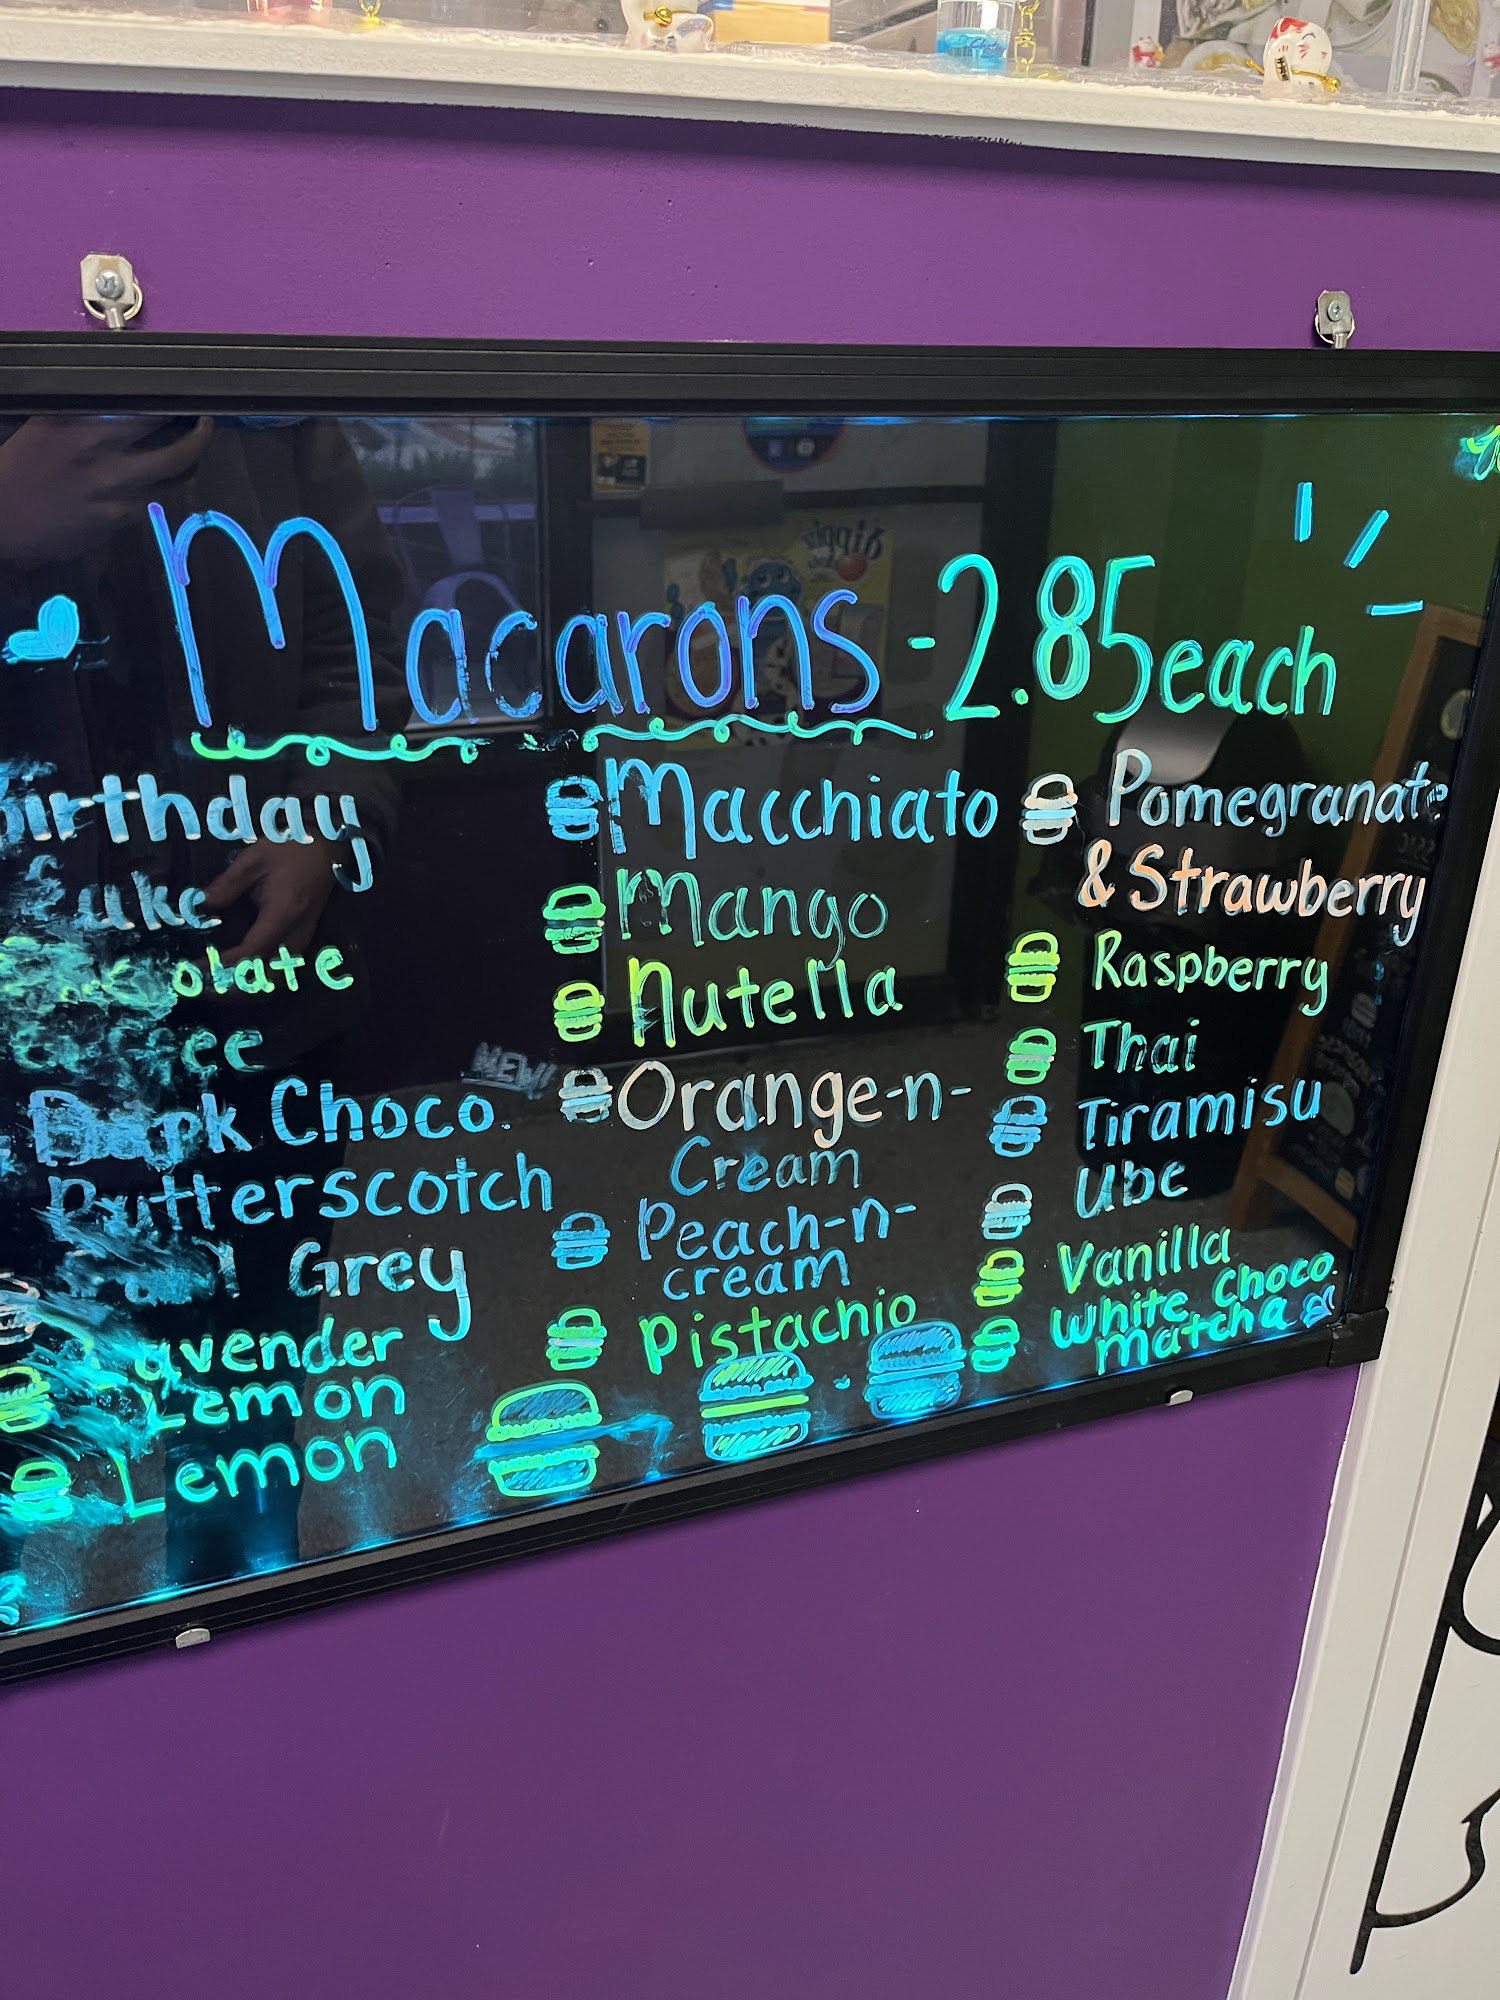 Macarons - 2.85 each
Birthday
Cake
Chocolate
Dark Choco.
Butterscotch
Grey
Lavender
Lemon
Lemon
Macchiato
Mango
Nutella
NEW!
Orange-n-
Cream
Peach-n-
cream
Pistachio
Pomegranate
& Strawberry
Raspberry
Thai
Tiramisu
Ube
Vanilla
White Choco.
Matcha